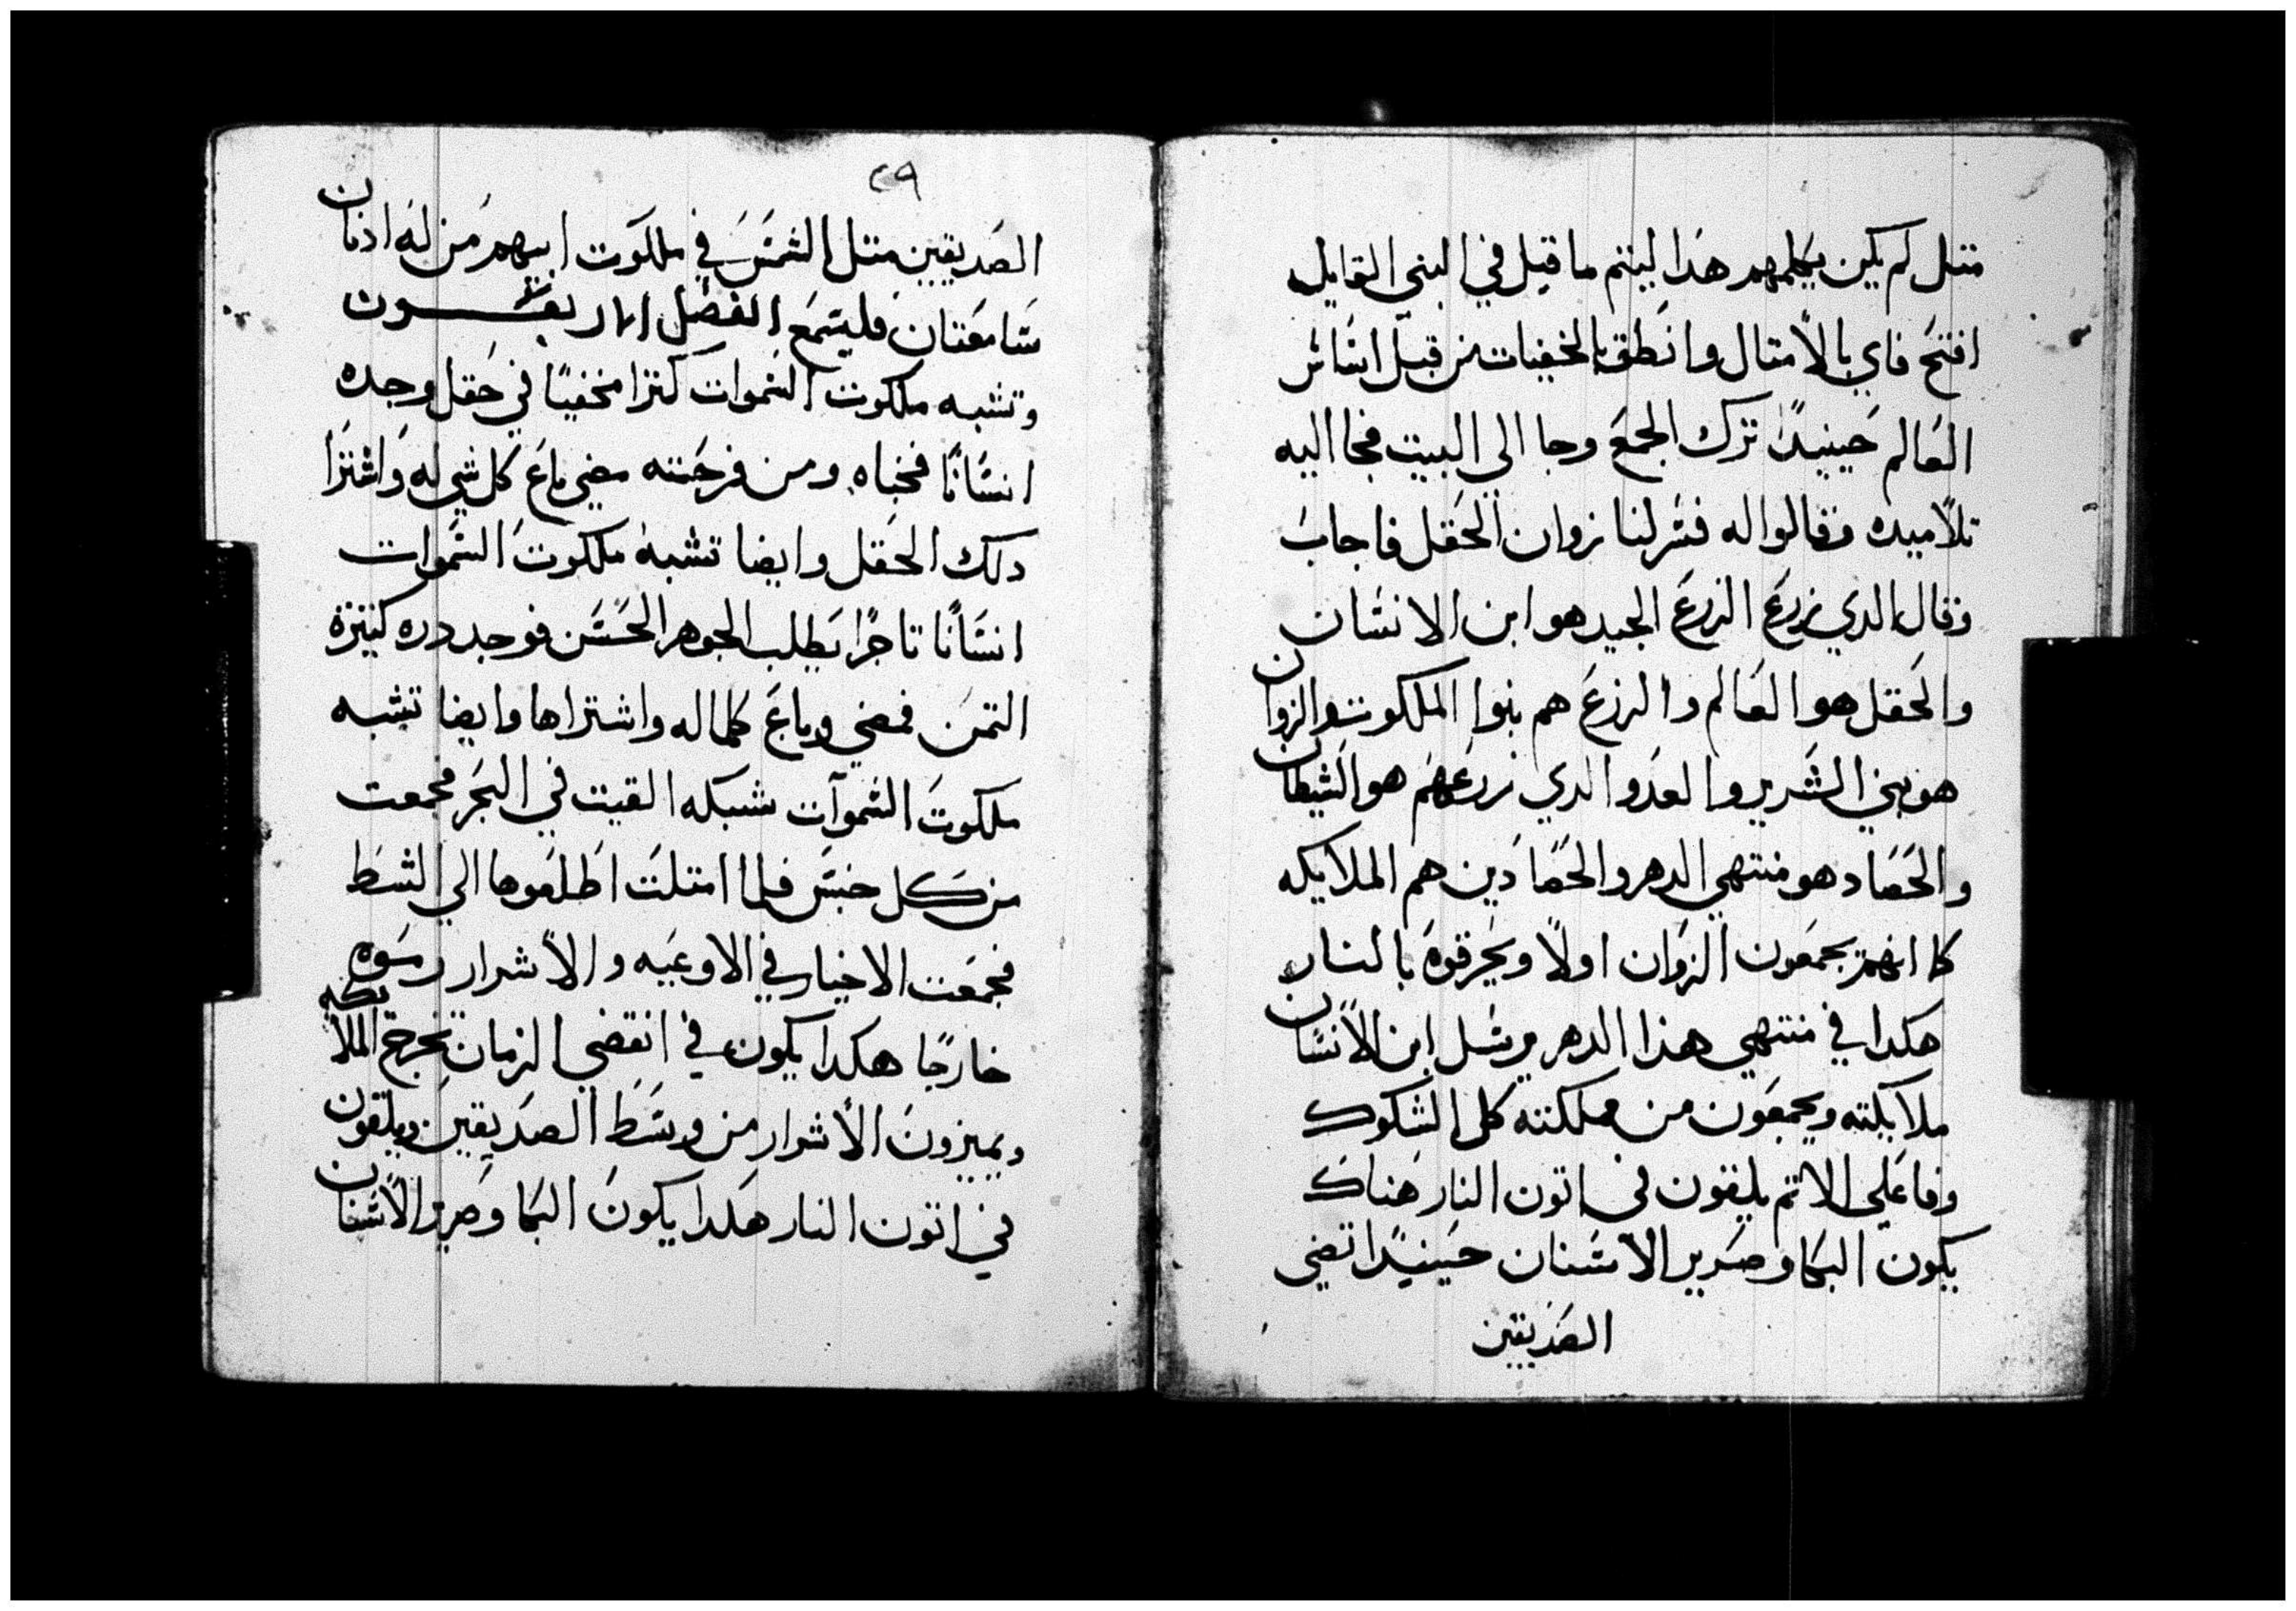 متل لم يكن يكلمهم هدا ليتم ما قيل في النبي القايل
افتح فاي بالامتال وانطق بالخفيات من قبل اساس
العالم حينيدًا ترك الجمع وجا الي البيت فجا اليه
تلاميده وقالوا له فسر لنا زوان الحقل فاجاب
وقال الدي زرع الزرع الجيد هو ابن الانسان
والحقل هو العالم والزرع هم بنوا الملكوت والزوان
هو بني الشرير والعدو الدي زرعهم هو الشيطان
والحصاد هو منتهي الدهر والحصادين هم الملايكه
كما انهم يجمعون الزوان اولًا ويحرقوه بالنار
هكدا في منتهي هذا الدهر يرسل ابن الانسان
ملايكته ويجمعون من مملكته كل الشكوك
وفاعلي الاتم يلقون في اتون النار هناك
يكون البكا وصرير الاسنان حينيدًا تضي
الصديقين
٢٩
الصديقين متل الشمس في ملكوت ابيهم من له ادنان
سامعتان فليسمع الفصل
وتشبه ملكوت السموات كنزا مخفيًا في حقل وجده
انسانًا فخباه ومن فرحته مضي باع كل شي له واشترا
دلك الحقل وايضا تشبه ملكوت السموات
انسانًا تاجرًا يطلب الجوهر الحسن فوجد دره كتيرة
التمن فمضي وباع كلماله واشتراها وايضا تشبه
ملكوت السموات شبكه القيت في البحر فجمعت
من كل جنس فلما امتلت اطلعوها الي الشط
فجمعت الاخيار في الاوعيه والاشرار رموه
خارجًا هكدا يكون في انقضي الزمان تخرج الملايكه
ويميزون الاشرار من وسط الصديقين ويلقون
في اتون النار هكدا يكون البكا وصرير الاسنان